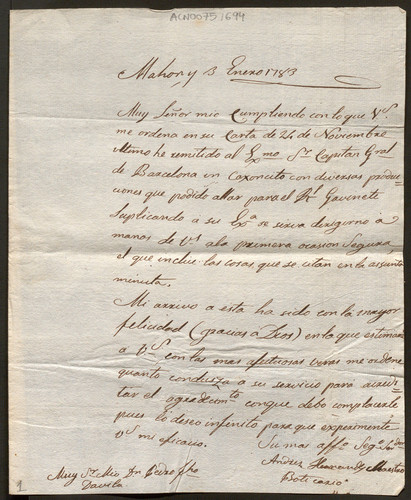 ACN0075/694
Mahon y 3 Enero 1783
Muy Señor mio Cumpliendo con lo que V.S.
me ordena en su Carta de 24 de Noviembre
ultimo he remitido al Exmo. Sr Capitan Gral
de Barcelona un Caxoncito con diversas produc-
ciones que podido allar para el Rl Gavinete
Suplicando a su Exa se sirva derigirlo à
manos de V.S. a la primera ocasion Segura,
el que incluie las cosas, que se citan en la adjunta
minuta.
Mi arrivo a esta ha sido con la mayor
felicidad (gracias a Dios) en lo que estimaré
a V.S. con las mas afectuosas veras me ordene
quanto conduzca a su servicio para acredi-
tar el agradecimto conque debo complacerle
pues lo deseo infinito para que experimente
V.S. mi eficacia.
Su mas affto Segro
Andres Hernandez Maestro
Boticario
Muy Sr Mio Dn Pedro Fco
Davila
1